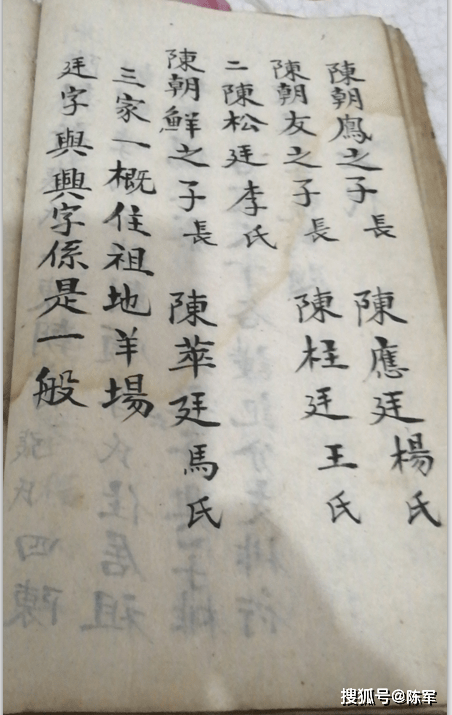 陳朝鳳之子長 陳應廷楊氏
陳朝友之子長 陳柱廷王氏
二陳松廷李氏
陳朝鮮之子長 陳華廷馬氏
三家一概住祖地羊場
廷字與興字係是一般
搜狐号@陈军